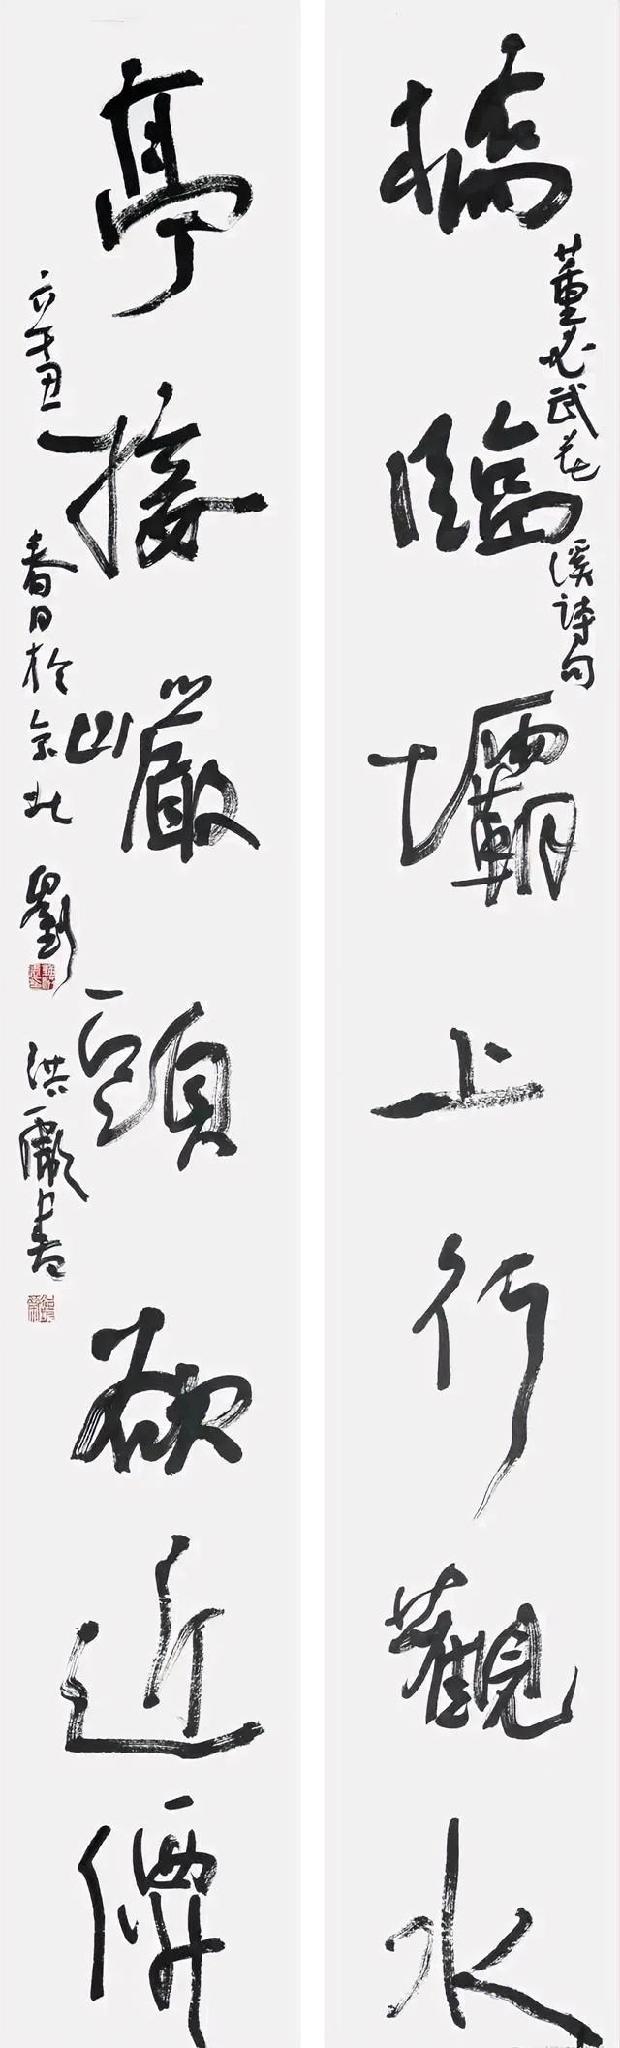 橋臨壩上行觀水
董必武花溪詩句
亭接巖頭欲近僊
辛丑春日於京北劉洪彪書